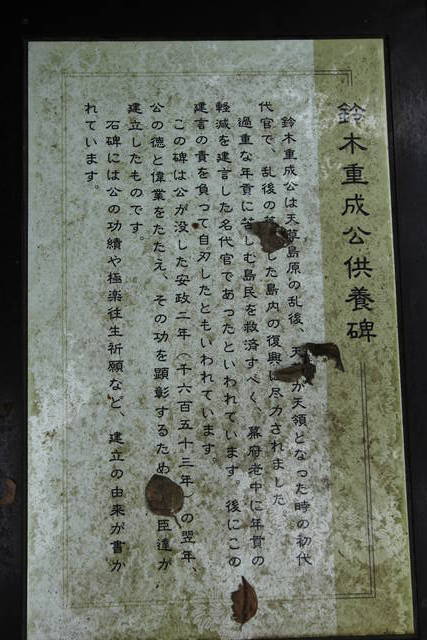 鈴木重成公供養碑
鈴木重成公は天草島原の乱後、天 が天領となった時の初代
代官で、乱後の した島内の復興に尽力されました
過重な年貢に苦しむ島民を救済すべく、幕府老中に年貢の
軽減を建言した名代官であったといわれています。後にこの
建言の責を負って自刃したともいわれています。
この碑は公が没した安政二年(千六百五十三年)の翌年、
公の徳と偉業をたたえ、その功を顕彰するため 臣達が
建立したものです。
石碑には公の功績や極楽往生祈願など、建立の由来が書か
れています。